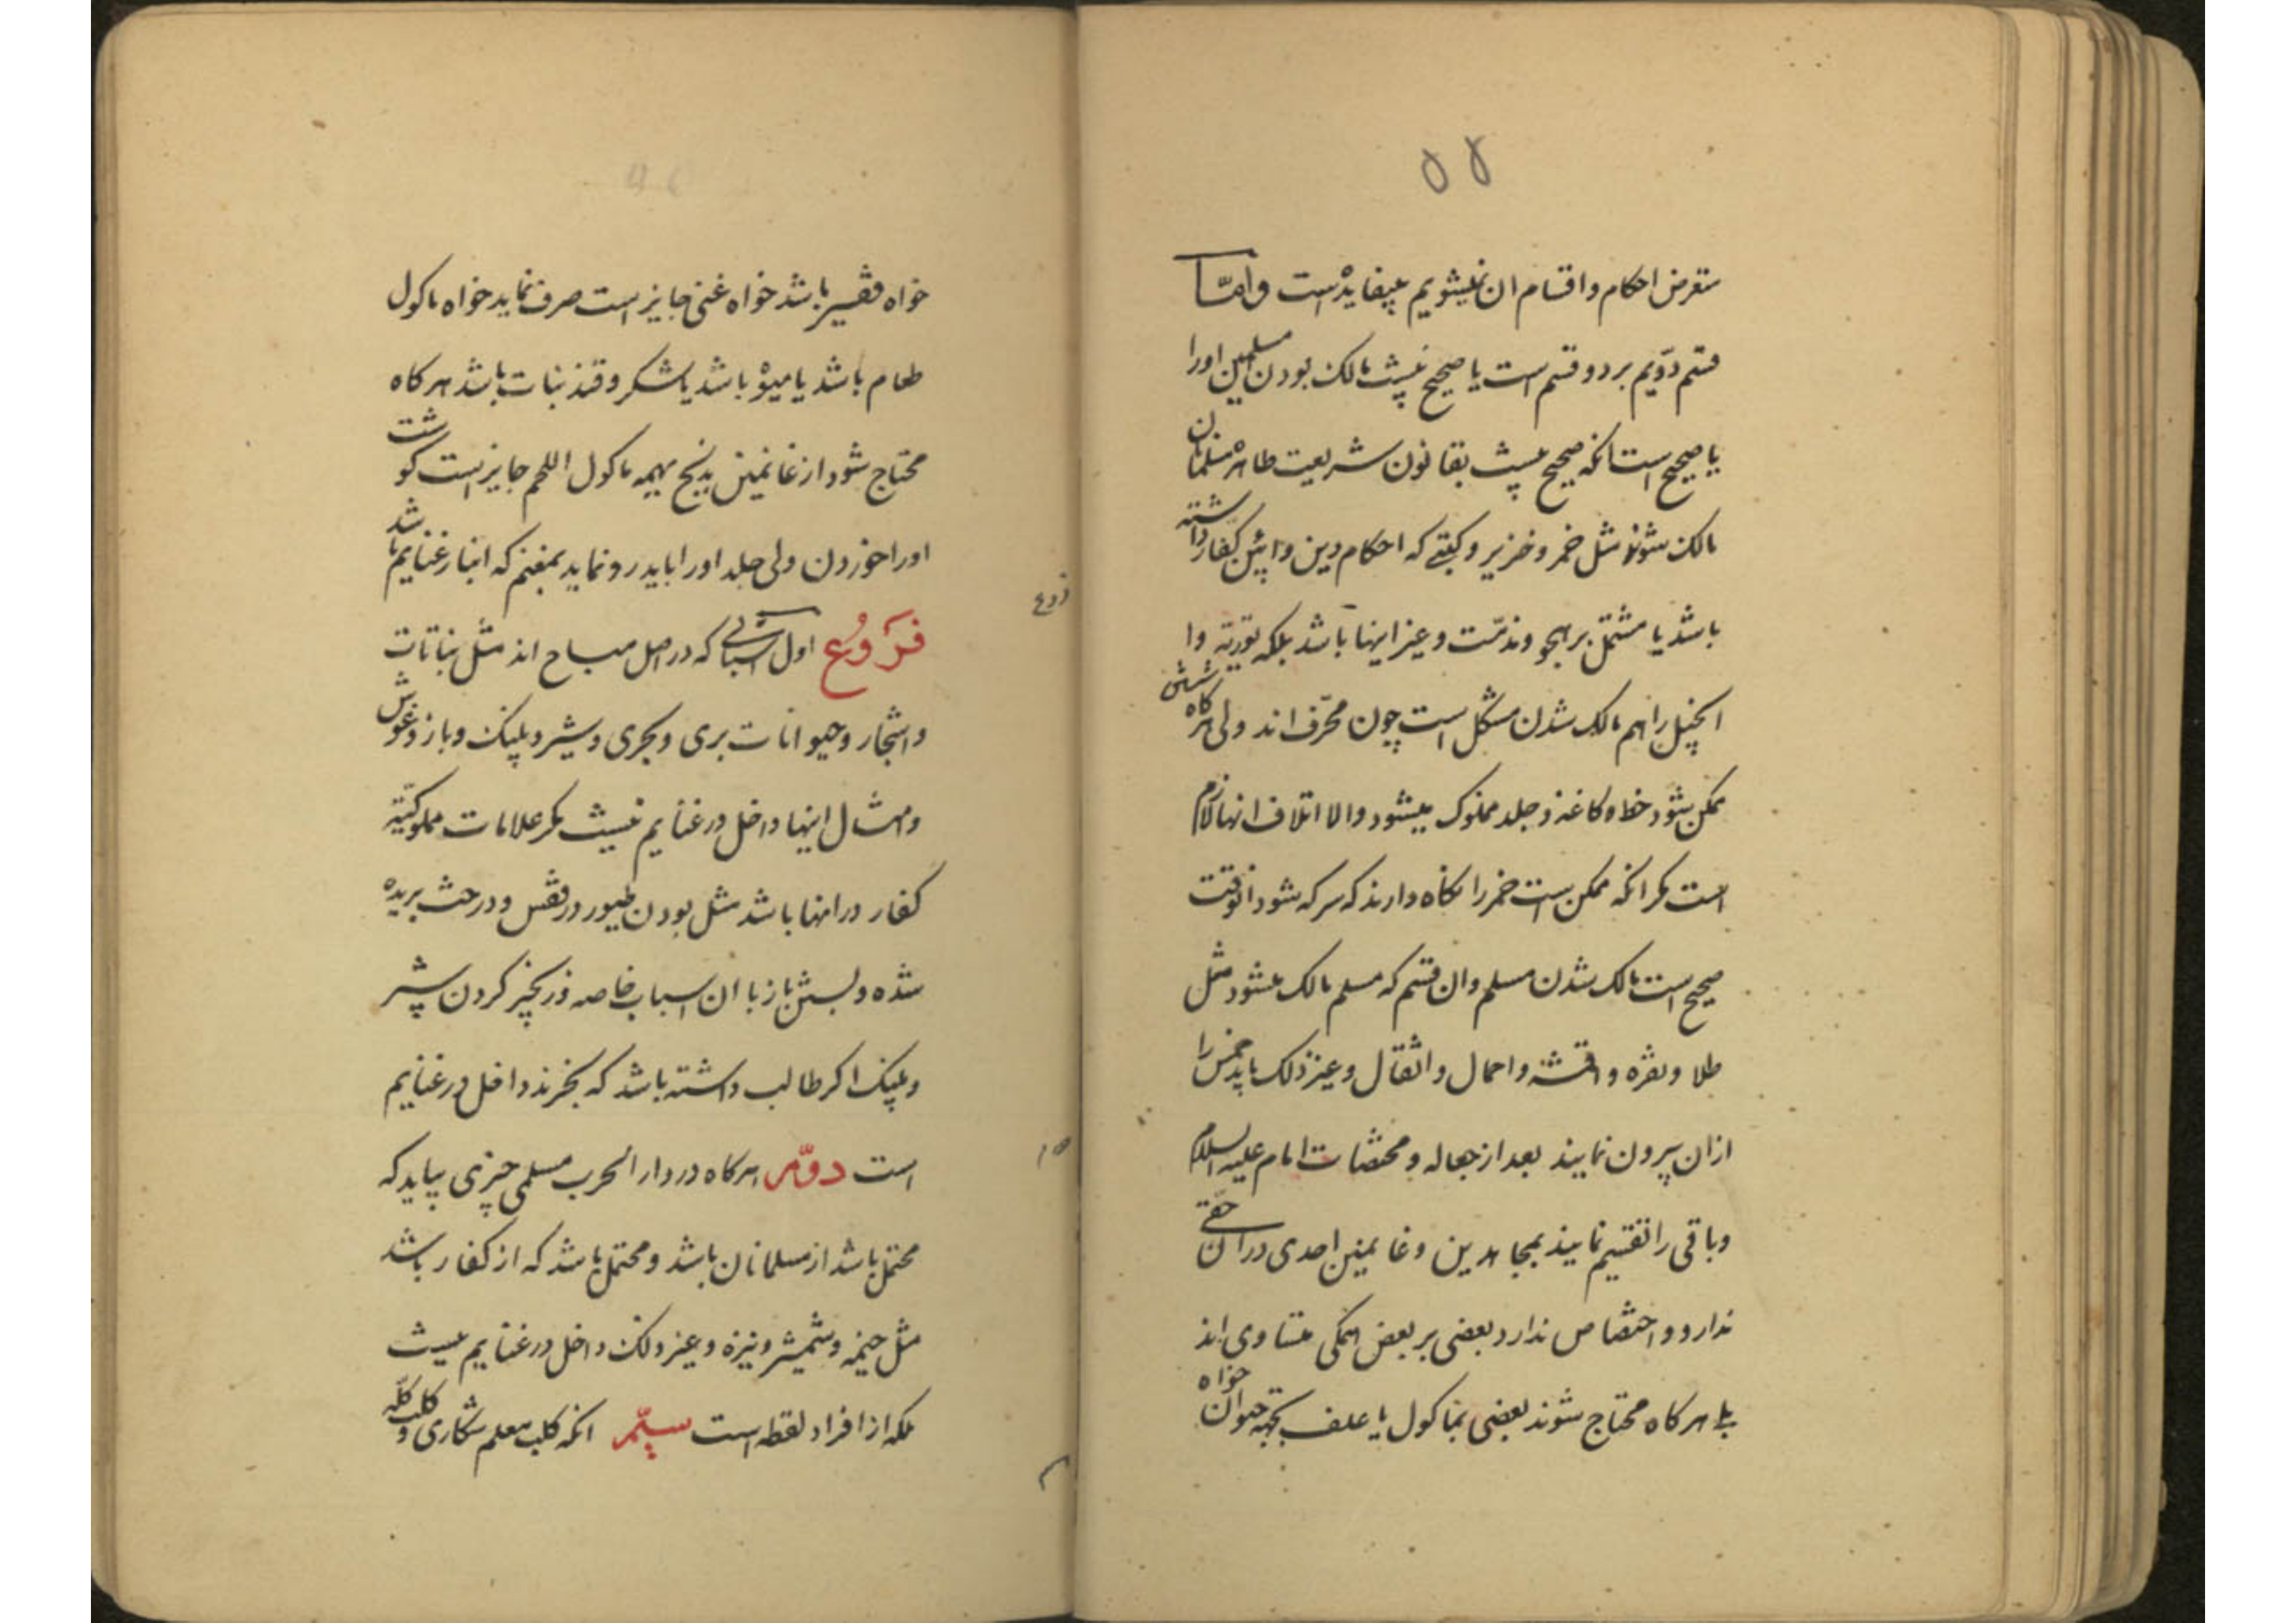 ۵۵
متعرض احکام و اقسام ان نمیشویم بیفایده است و امّا
قسم دوّیم بر دو قسم است یا صحیح نیست مالک بودن مسلمین اورا
یا صحیح است انکه صحیح نیست بقانون شریعت طاهره مسلمانان
مالک شوند مثل خمر و خنزیر و کتبی که احکام دین و ایین کفار داشته
باشد یا مشتمل بر هجو و مذمّت و غیر اینها باشد بلکه توریة و ا
انجیل را هم مالک شدن مشکل است چون محرّف اند ولی هر کاه شستن
ممکن شود خط و کاغذ و جلد مملوک میشود و الا اتلاف انها لازم
است مکر انکه ممکن است خمر را نکاه دارند که سرکه شود انوقت
صحیح است مالک شدن مسلم و ان قسم که مسلم مالک میشود مثل
طلا و نقره و اقمشه و احمال و اثقال و غیر ذلک باید خمس را
ازان بیرون نمایند بعد از جعاله و مختصات امام علیه السلام
و باقی را تقسیم نمایند بمجاهدین و غانمین احدی دران حقّی
ندارد و اختصاص ندارد بعضی بر بعض همکی متساوی اند
بلی هر کاه محتاج شوند بعضی بماکول یا علف بجهة حیوان خواه
خواه فقیر باشد خواه غنی جایز است صرف نماید خواه ماکول
طعام باشد یا میوه باشد یا شکر و قند نبات باشد هر کاه
محتاج شود از غانمین بذبح بهیمه ماکول اللحم جایز است کوشت
اورا خوردن ولی جلد اورا باید رد نماید بمغنم که انبار غنایم باشد
فروع
فَروُع اول اشیائی که در اصل مباح اند مثل نباتات
و اشجار و حیوانات بری و بحری و شیر و پلنک و باز و غوش
و امثال اینها داخل در غنایم نیست مکر علامات مملوکیّة
کفار در انها باشد مثل بودن طیور در قفس و درخت بریده
شده و بستن باز با ان اسباب خاصه و زنجیر کردن شیر
و پلنک اکر طالب داشته باشد که بخرند داخل در غنایم
است دوّم هر کاه در دار الحرب مسلمی چیزی بیابد که
محتمل باشد از مسلمانان باشد و محتمل باشد که از کفار باشد
مثل خیمه و شمشیر و نیزه و غیر ذلک داخل در غنایم نیست
بلکه از افراد لقطه است سیّم انکه کلب معلم شکاری و کلب کلّه